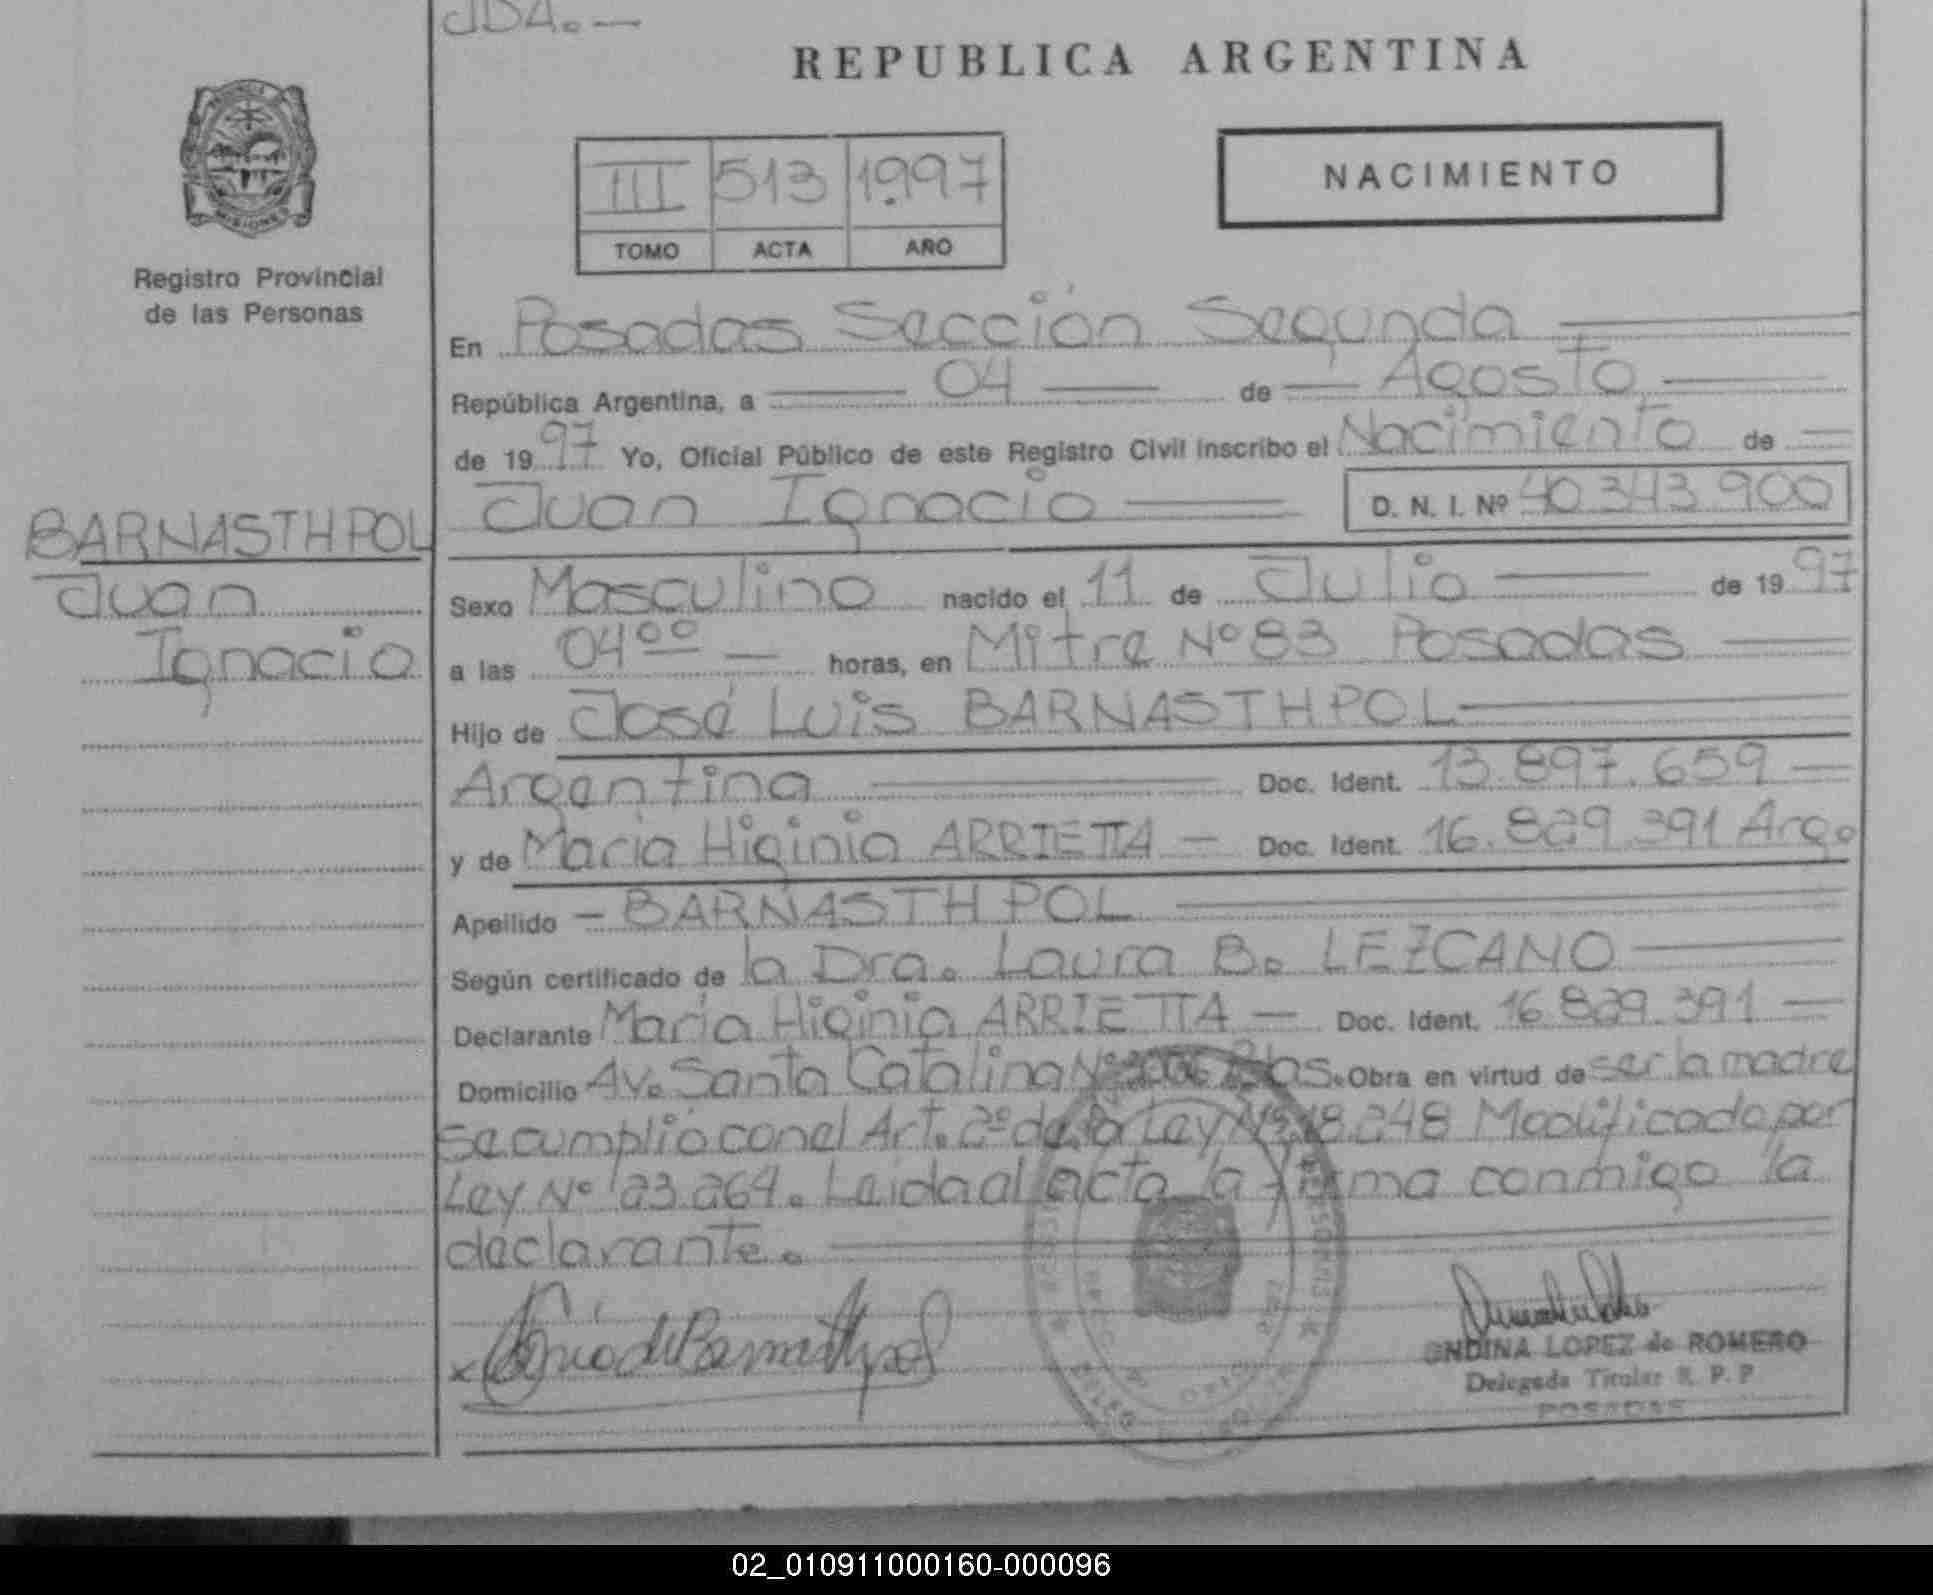 JDA.—
REPUBLICA ARGENTINA
III 513 1.997
TOMO ACTA AÑO
NACIMIENTO
Registro Provincial
de las Personas
En Posadas Sección Segunda
República Argentina, a 04 de Agosto
de 1997 Yo, Oficial Público de este Registro Civil inscribo el Nacimiento de
Juan Ignacio D. N. I. Nº 40.343.900
BARNASTHPOL
Juan
Ignacio
Sexo Masculino nacido el 11 de Julio de 1997
a las 04ºº horas, en Mitre Nº 83 Posadas
Hijo de José Luis BARNASTHPOL
Argentina Doc. Ident. 13.897.659
y de María Higinia ARRIETTA Doc. Ident. 16.829.391 Arg.
Apellido BARNASTHPOL
Según certificado de la Dra. Laura B. LEZCANO
Declarante María Higinia ARRIETTA Doc. Ident. 16.829.391
Domicilio Av. Santa Catalina Obra en virtud de ser la madre
se cumplió con el Art. 2º de la Ley Nº 18.248 Modificado por
Ley Nº 23.264. Leida al acta la firma conmigo la
declarante.
ONDINA LOPEZ de ROMERO
Delegada Titular R. P. P
POSADAS
02_010911000160-000096